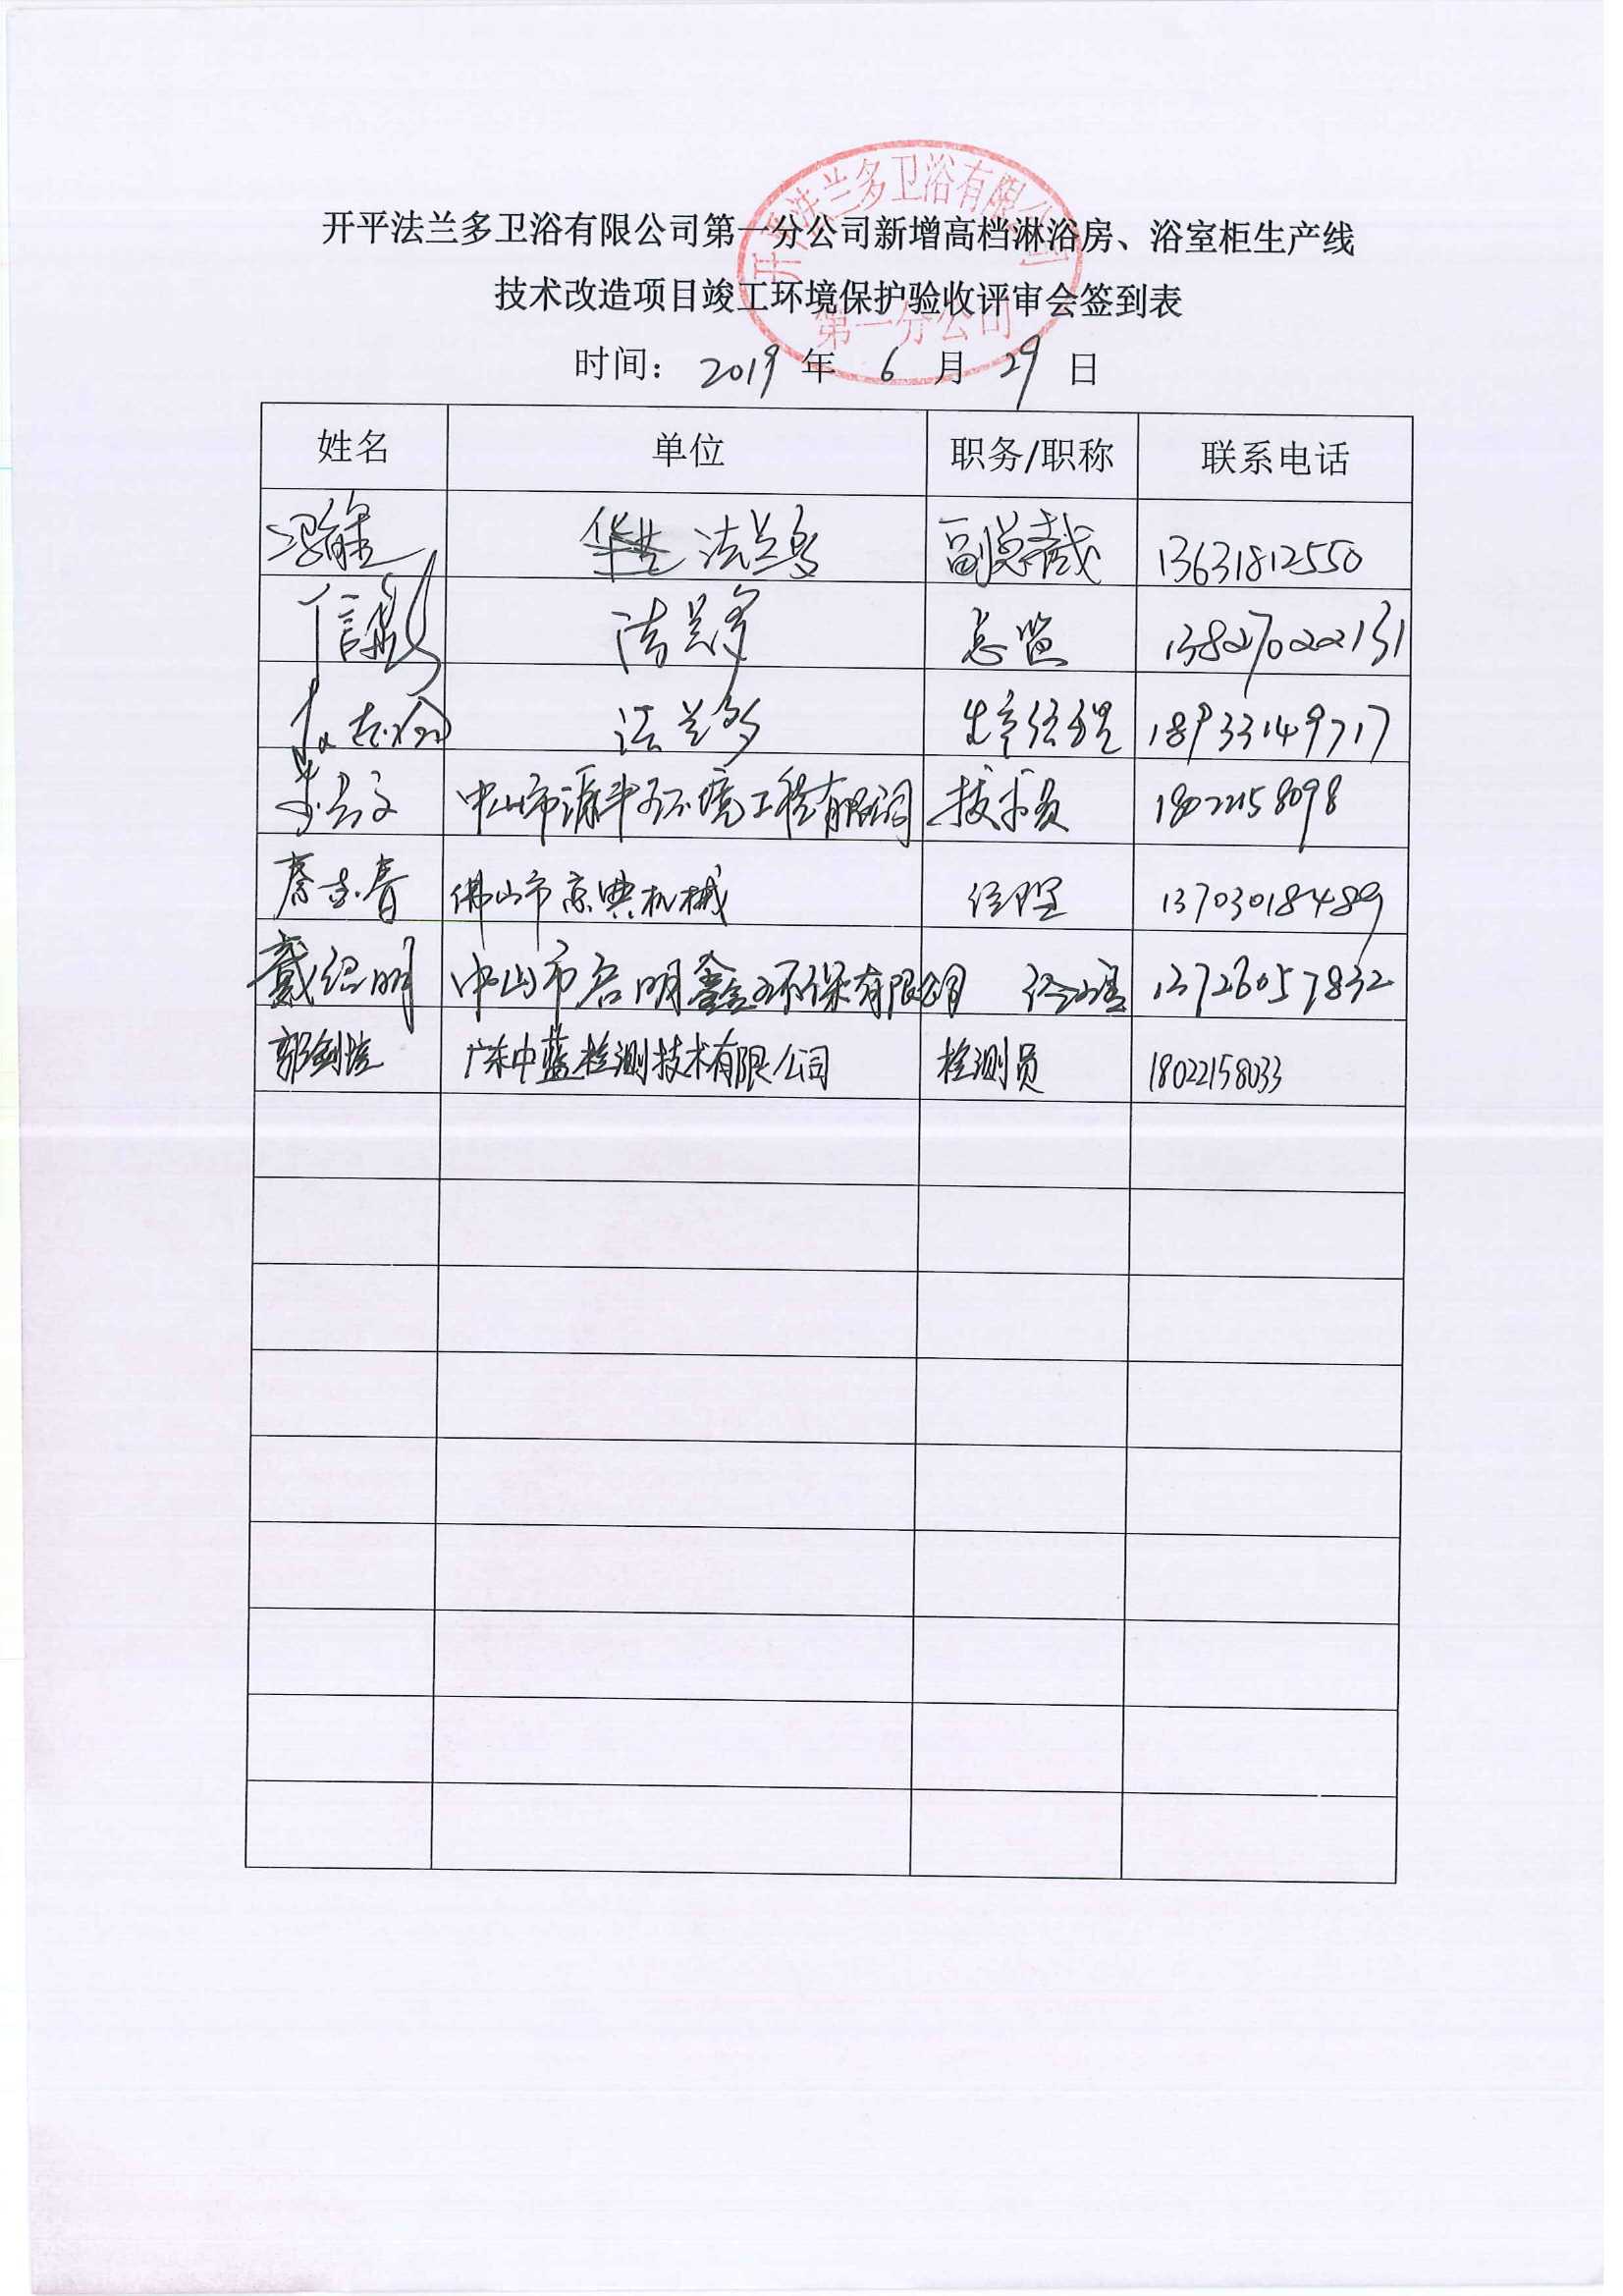 开平法兰多卫浴有限公司
第一分公司
开平法兰多卫浴有限公司第一分公司新增高档淋浴房、浴室柜生产线
技术改造项目竣工环境保护验收评审会签到表
时间: 2019 年 6 月 29 日
姓名 单位 职务/职称 联系电话
法兰多 副总裁 13631812550
法兰多 总监 13827022131
法兰多 生产经理 18933149717
中山市 环境工程有限公司 技术员 18022158098
蔡志春 佛山市京典机械 经理 13703018489
戴绍明 中山市启明鑫环保有限公司 经理 13726057832
郭剑 广东中蓝检测技术有限公司 检测员 18022158033